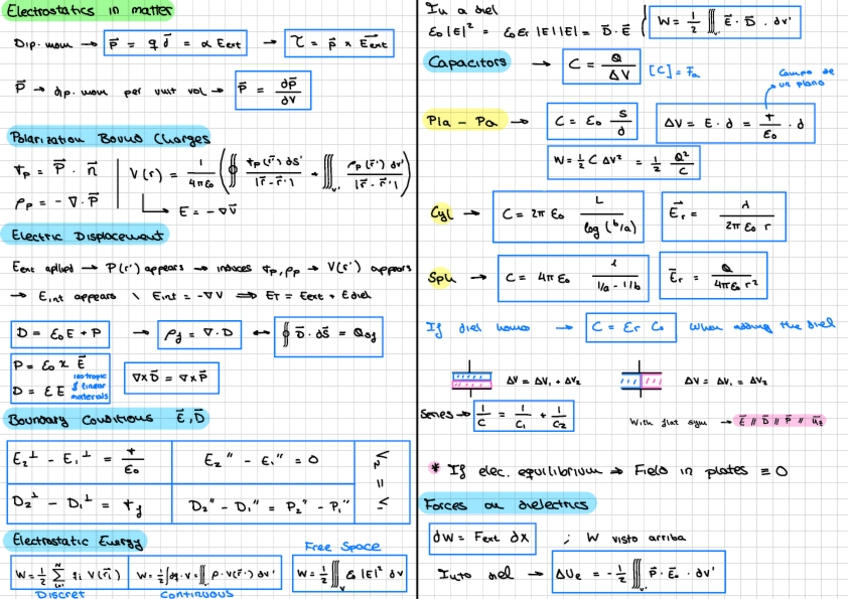 Electrostatics in matter
Dip. mom → p⃗ = q d⃗ = α Eext → τ = p⃗ × E⃗ext
P⃗ → dip. mom per unit vol → P⃗ = ∂p⃗/∂V
Polarization Bound Charges
σp = P⃗ · n⃗
ρp = -∇ · P⃗
V(r) = 1/4πε₀ ( ∯ σp(r⃗') ds'/|r⃗ - r⃗'| + ∭v' ρp(r⃗') dv'/|r⃗ - r⃗'| )
→ E = -∇V⃗
Electric Displacement
Eext apllied → P(r') appears → induces σp, ρp → V(r') appears
→ Eint appears \ Eint = -∇V ⟹ ET = Eext + Ediel
D = ε₀E + P → ρf = ∇ · D ↔ ∮ D⃗ · dS⃗ = Qof
P = ε₀ χ E⃗
D = εE isotropic & linear materials
∇×D⃗ = ∇×P⃗
Boundary Conditions E⃗, D⃗
E₂⊥ - E₁⊥ = σ/ε₀
E₂" - E₁" = 0
D₂⊥ - D₁⊥ = σf
D₂" - D₁" = P₂" - P₁"
V₂ = V₁
Electrostatic Energy
W = 1/2 Σ qi V(r⃗i)
Discret
W = 1/2 ∫dq·V = ∭ ρ·V(r⃗') dv'
Continuous
Free Space
W = 1/2 ∭ ε₀ |E|² dv
In a diel
ε₀|E|² = ε₀εr |E||E| = D⃗ · E⃗
W = 1/2 ∭ E⃗ · D⃗ · dv'
Capacitors → C = Q/ΔV [C] = Fa
Campo de un plano
Pla - Pa → C = ε₀ S/d
ΔV = E · d = σ/ε₀ · d
W = 1/2 C ΔV² = 1/2 Q²/C
Cyl → C = 2π ε₀ L/log(b/a)
E⃗r = λ/2π ε₀ r
Sph → C = 4π ε₀ 1/1/a - 1/b
E⃗r = Q/4πε₀ r²
If diel homo → C = εr C₀ When adding the diel
ΔV = ΔV₁ + ΔV₂
ΔV = ΔV₁ = ΔV₂
Series → 1/C = 1/C₁ + 1/C₂
With flat sym → E⃗ // D⃗ // P⃗ // u⃗z
* If elec. equilibrium → Field in plates ≡ 0
Forces on dielectrics
dW = Fext dx ; W visto arriba
Into diel → ΔUe = -1/2 ∭ P⃗ · E⃗₀ · dv'